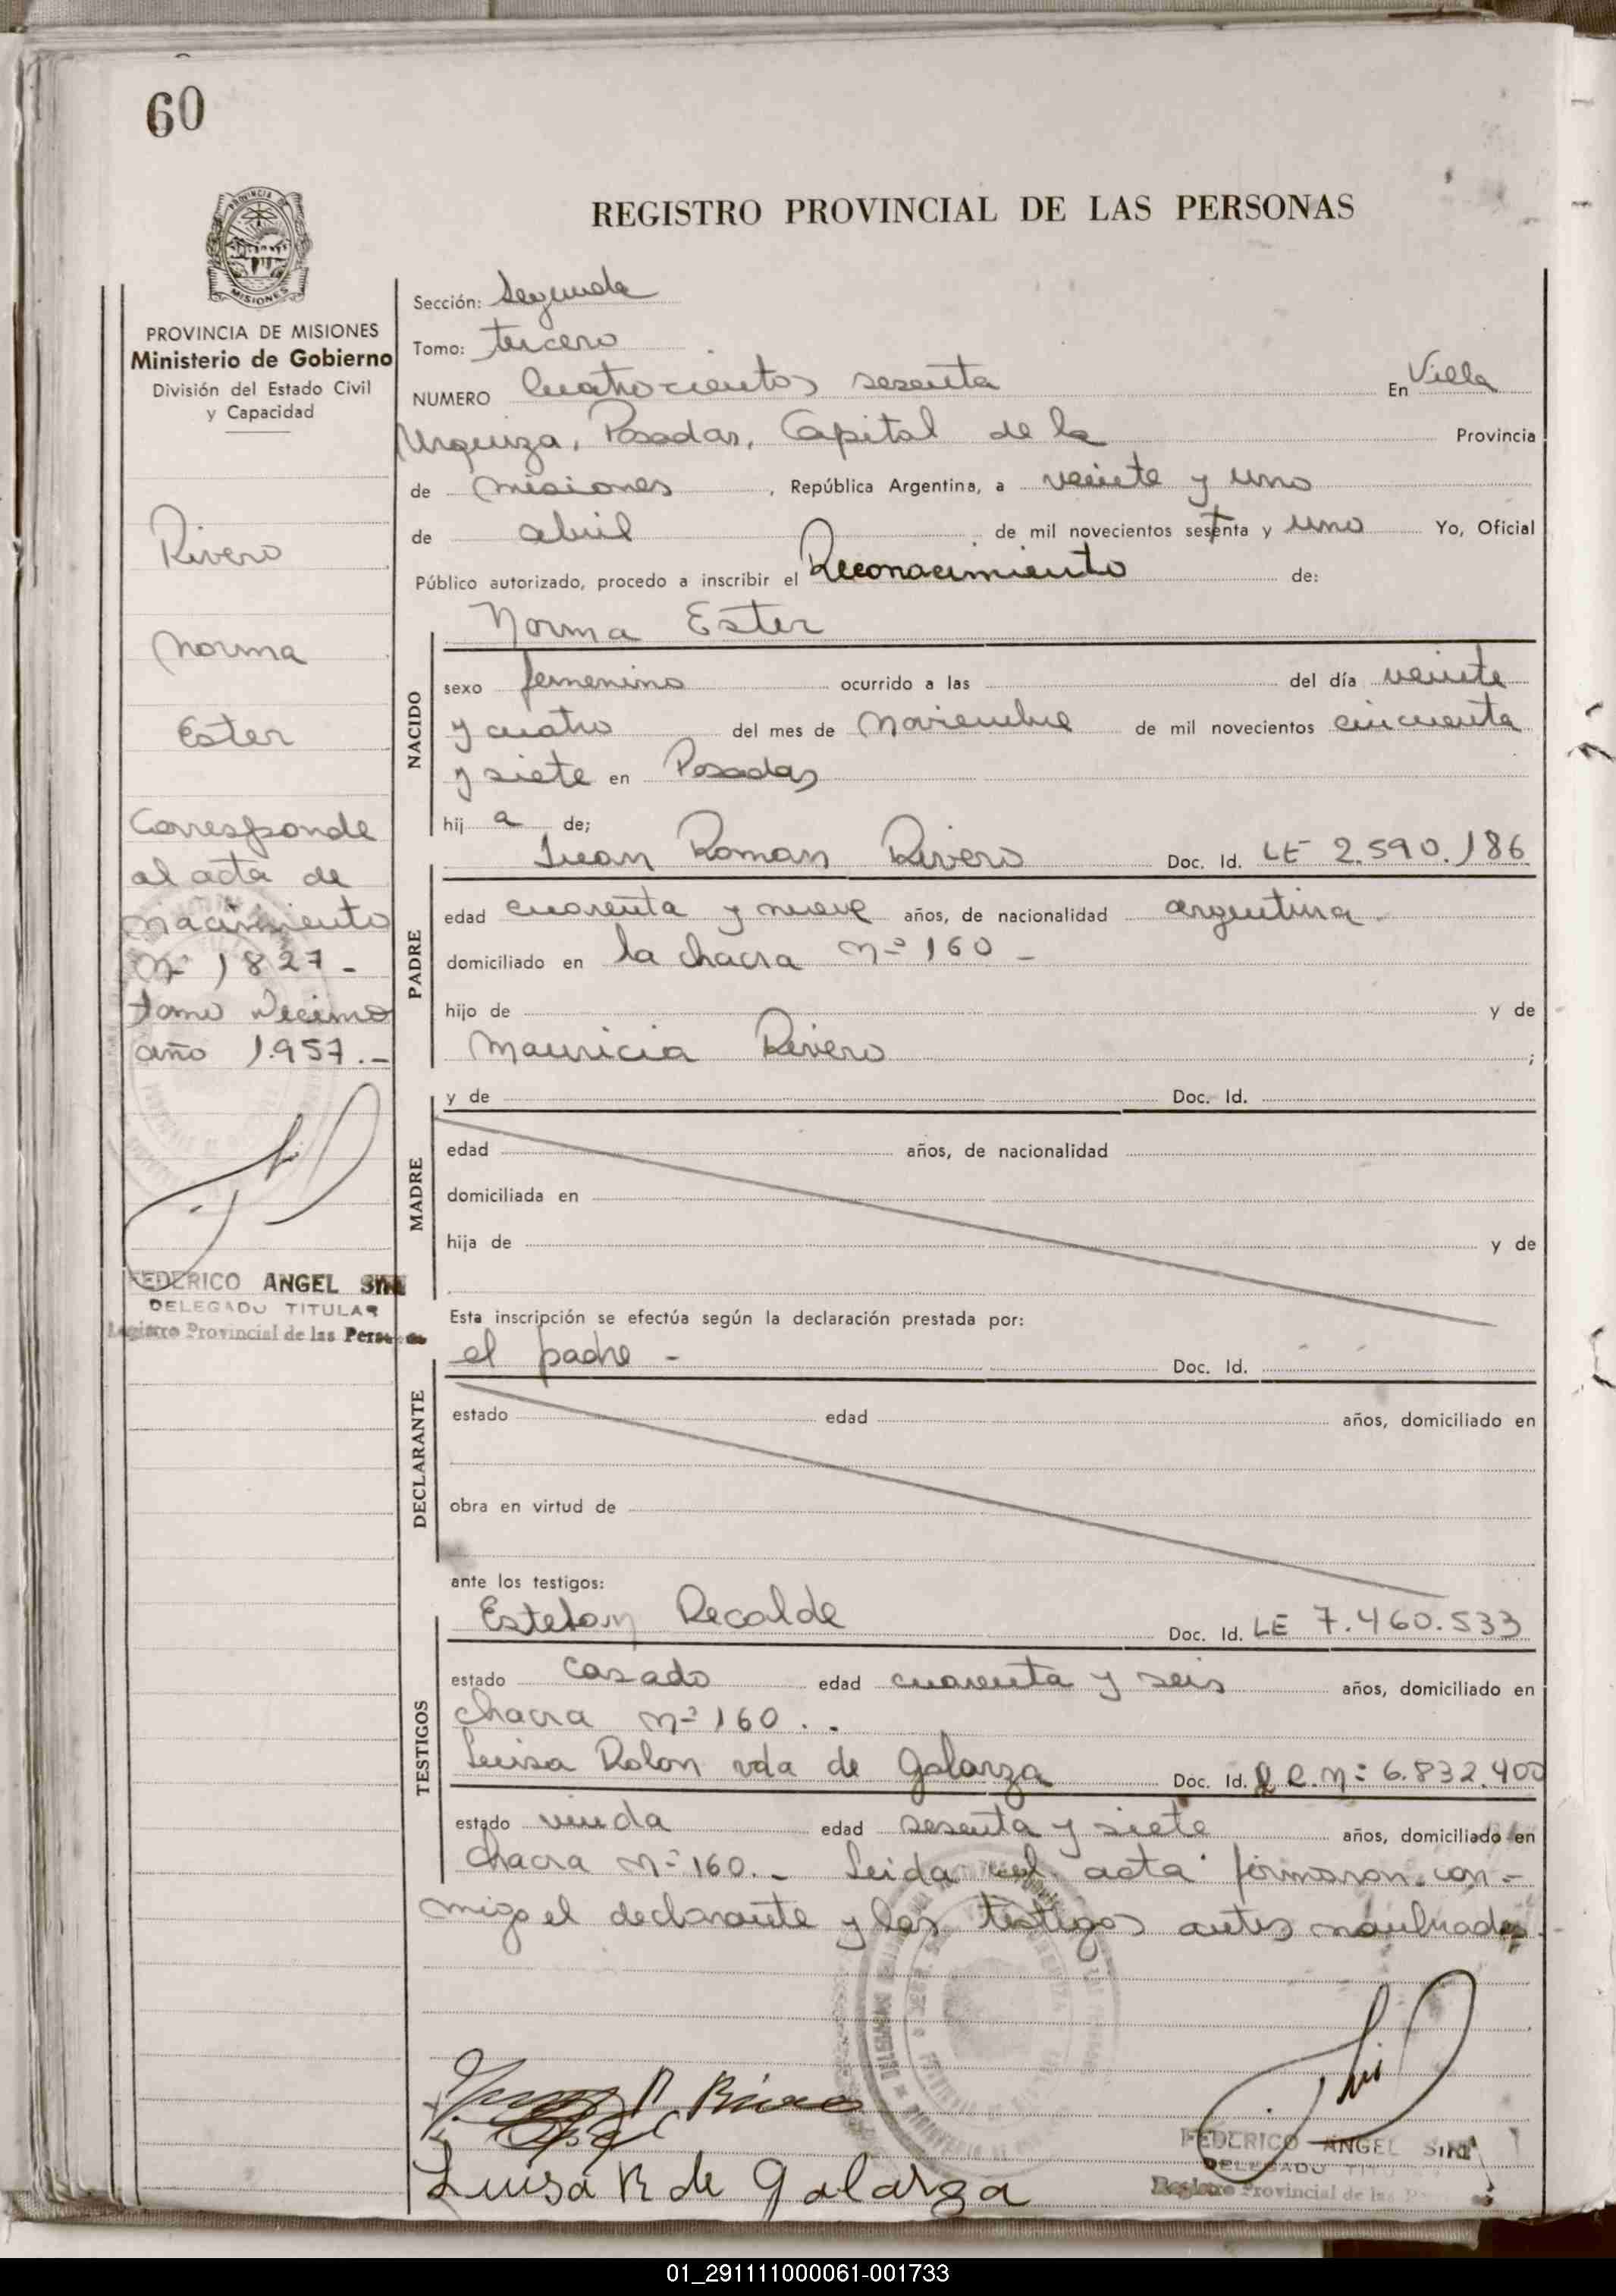 60
PROVINCIA DE
MISIONES
REGISTRO PROVINCIAL DE LAS PERSONAS
PROVINCIA DE MISIONES
Ministerio de Gobierno
División del Estado Civil
y Capacidad
Rivero
Norma
Ester
Corresponde
al acta de
nacimiento
Nº 1827-
tomo Decimo
año 1.957.-
FEDERICO ANGEL
DELEGADO TITULAR
Registro Provincial de las
Sección: Segunda
Tomo: tercero
NUMERO Cuatrocientos sesenta En Villa
Urquiza, Posadas, Capital de la Provincia
de Misiones, República Argentina, a veinte y uno
de abril de mil novecientos setenta y uno Yo, Oficial
Público autorizado, procedo a inscribir el Reconocimiento de:
Norma Ester
NACIDO
sexo femenino ocurrido a las del día veinte
y cuatro del mes de Noviembre de mil novecientos cincuenta
y siete en Posadas
hij a de;
Juan Roman Rivero Doc. Id. LE 2.590.186
PADRE
edad cuarenta y nueve años, de nacionalidad argentina
domiciliado en la chacra nº 160 -
hijo de y de
Mauricia Rivero ;
y de Doc. Id.
MADRE
edad años, de nacionalidad
domiciliada en
hija de y de
Esta inscripción se efectúa según la declaración prestada por:
el padre - Doc. Id.
DECLARANTE
estado edad años, domiciliado en
obra en virtud de
ante los testigos:
Esteban Recalde Doc. Id. LE 7.460.533
TESTIGOS
estado casado edad cuarenta y seis años, domiciliado en
chacra nº 160..
Luisa Rolon vda de Galarza Doc. Id. L.C. Nº: 6.832.400
estado viuda edad sesenta y siete años, domiciliado en
chacra nº 160.- Leida el acta firmaron con-
migo el declarante y los testigos antes nombrados
R Rivero
Luisa R de Galarza
FEDERICO ANGEL
DELEGADO
Registro Provincial de las
01_291111000061-001733